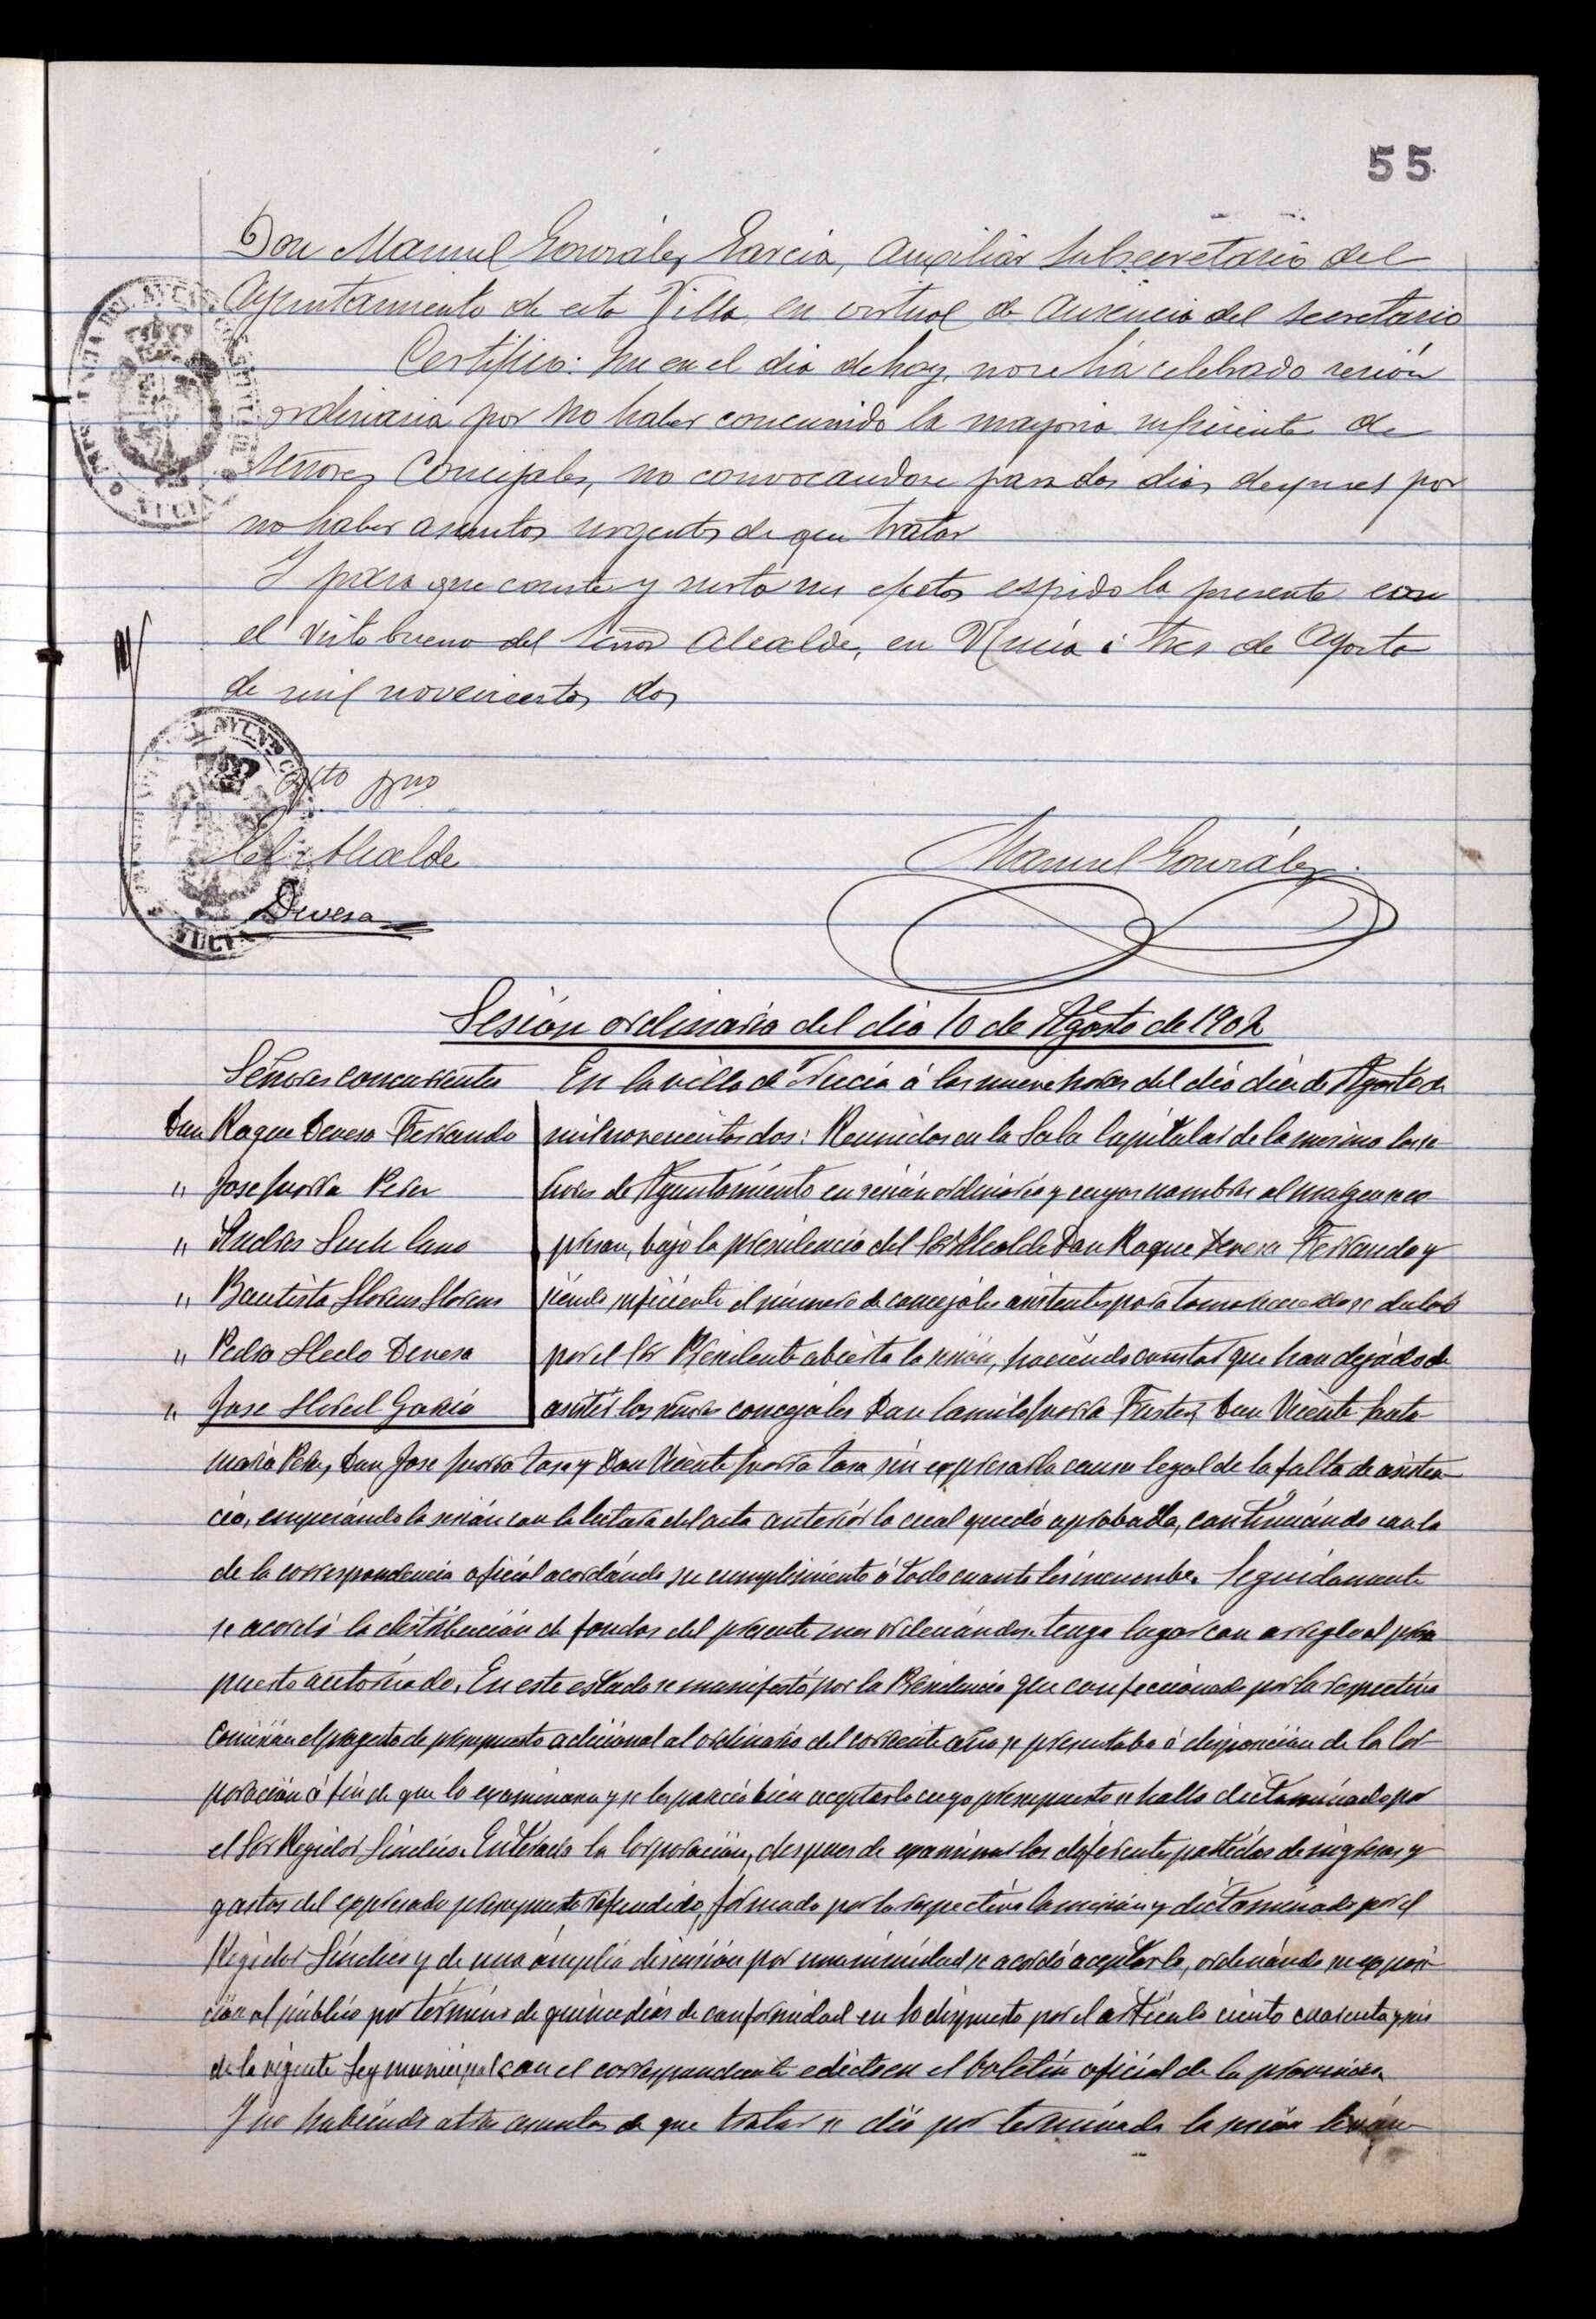 55
Don Manuel González García, Auxiliar Subsecretario del
Ayuntamiento de esta Villa en virtud de Ausencia del Secretario
Certifico: Que en el dia de hoy, no se há celebrado sesión
ordinaria por no haber concurrido la mayoria suficiente de
Señores Concejales, no convocandose para dos dias despues por
no haber asuntos urgentes de que tratar
Y para que conste y surta sus efectos espido la presente con
el Visto bueno del Señor Alcalde, en Nucia á tres de Agosto
de mil novecientos dos
Vto Bno
El Alcalde
Devesa
Manuel González
Sesión ordinaria del dia 10 de Agosto de 1902
Señores concurrentes
Don Roque Devesa Ferrando
" Jose Ivorra Perez
" Andres Such Cano
" Bautista Llorens Llorens
" Pedro Lledo Devesa
" Jose Llorens García
En la villa de Nucia á las nueve horas del dia diez de Agosto de
mil novecientos dos: Reunidos en la Sala Capitular de la misma los se
ñores de Ayuntamiento en sesión ordinaria y cuyos nombres al margen se es
presan, bajo la presidencia del Sor Alcalde Don Roque Devesa Ferrando y
siendo suficiente el número de concejales asistentes para tomar acuerdo se declaró
por el Sor Presidente abierta la sesión, haciendo constar que han dejado de
asistir los señores concejales Don Camilo Ivorra Fuster, Don Vicente Santa
maria Perez, Don Jose Ivorra Tasa y Don Vicente Ivorra Tasa sin expresar la causa legal de la falta de asisten
cia, empezándo la sesión con la lectura del acta anterior la cual quedó aprobada, continuándo con la
de la correspondencia oficial acordándo su cumplimiento á todo cuanto les incumbe. Seguidamente
se acordó la distribución de fondos del presente mes ordenándose tenga lugar con arreglo al presu
puesto autorizado. En este estado se manifestó por la Presidencia que confeccionado por la respectiva
Comisión el proyecto de presupuesto adicional al ordinario del corriente año se presentaba á disposición de la Cor
poración á fin de que lo examinara y si les parecia bien aceptarlo cuyo presupuesto se halla dictaminado por
el Sor Regidor Sindico. Enterada la Corporación, despues de examinar las diferentes partidas de ingresos y
gastos del expresado presupuesto refundido, formado por la respectiva Comisión y dictaminado por el
Regidor Síndico y de una ámplia discusión por unanimidad se acordó aceptarlo, ordenándo su exposi
ción al público por término de quince dias de conformidad en lo dispuesto por el artículo ciento cuarenta y seis
de la vigente Ley municipal con el correspondiente edicto en el boletin oficial de la provincia.
Y no habiendo otros asuntos de que tratar se dió por terminada la sesión leván